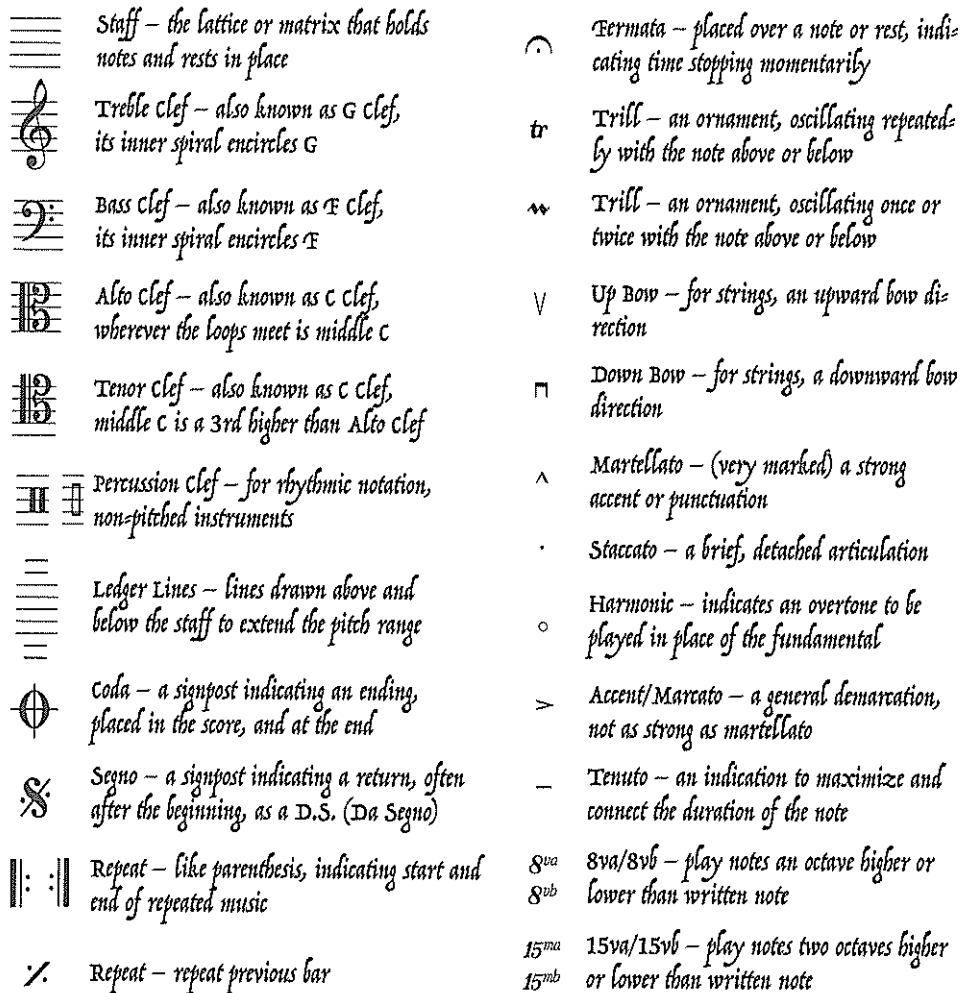 Staff – the lattice or matrix that holds
notes and rests in place
Treble Clef – also known as G Clef,
its inner spiral encircles G
Bass Clef – also known as F Clef,
its inner spiral encircles F
Alto Clef – also known as C Clef,
wherever the loops meet is middle C
Tenor Clef – also known as C Clef,
middle C is a 3rd higher than Alto Clef
Percussion Clef – for rhythmic notation,
non-pitched instruments
Ledger Lines – lines drawn above and
below the staff to extend the pitch range
Coda – a signpost indicating an ending,
placed in the score, and at the end
Segno – a signpost indicating a return, often
after the beginning, as a D.S. (Da Segno)
Repeat – like parenthesis, indicating start and
end of repeated music
Repeat – repeat previous bar
Fermata – placed over a note or rest, indi-
cating time stopping momentarily
tr Trill – an ornament, oscillating repeated-
ly with the note above or below
Trill – an ornament, oscillating once or
twice with the note above or below
Up Bow – for strings, an upward bow di-
rection
Down Bow – for strings, a downward bow
direction
Martellato – (very marked) a strong
accent or punctuation
Staccato – a brief, detached articulation
Harmonic – indicates an overtone to be
played in place of the fundamental
Accent/Marcato – a general demarcation,
not as strong as martellato
Tenuto – an indication to maximize and
connect the duration of the note
8va 8va/8vb – play notes an octave higher or
8vb lower than written note
15ma 15va/15vb – play notes two octaves higher
15mb or lower than written note